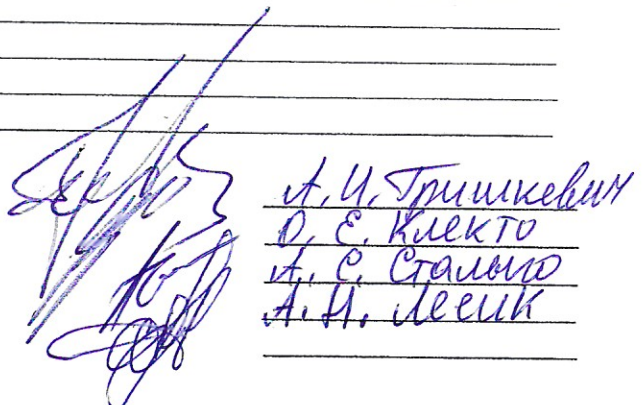 А.И. Гришкевич
О.Е. Клекто
А.С. Сталыго
А.Н. Лесик